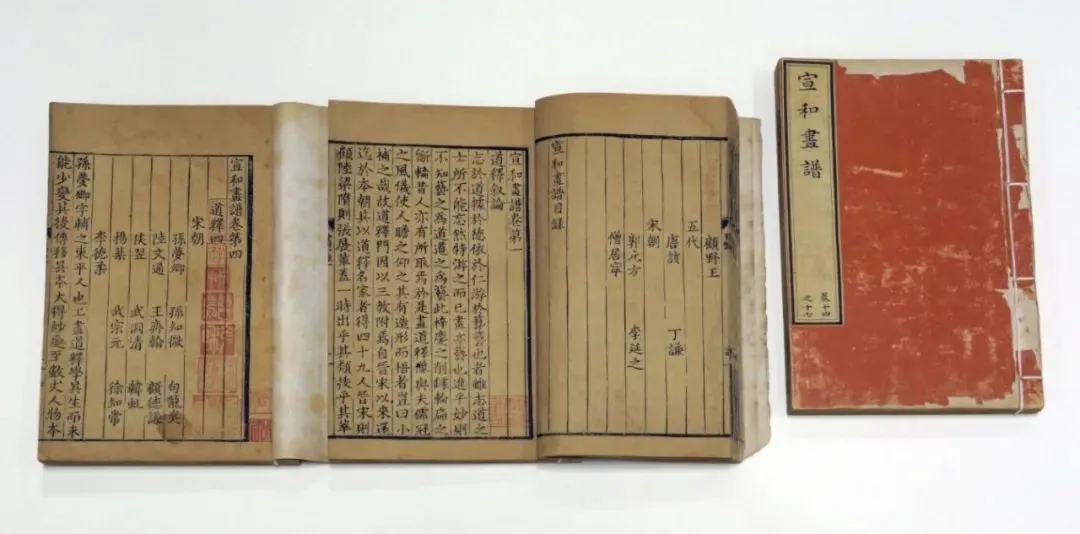 宣和畫譜
卷十四
之十七
顧野王
五代
唐讀 丁謙
宋朝
郭元方 李延之
僧居寧
宣和畫譜目録
宣和畫譜卷第一
道釋叙論
志於道據於德依於仁游於藝藝也者雖志道之
士所不能忘然特游之而已畫亦藝也進乎妙則
不知藝之為道道之為藝此梓慶之削鐻輪扁之
斲輪昔人亦有所取焉於是畫道釋像與夫儒冠
之風儀使人瞻之仰之其有造形而悟者豈曰小
補之哉故道釋門因以三教附焉自晉宋以來還
迄於本朝其以道釋名家者得四十九人晉宋則
顧陸梁隋則張展輩蓋一時出乎其類拔乎其萃
宣和畫譜卷第四
道釋四
宋朝
孫夢卿 孫知微 勾龍爽
陸文通 王齊翰 顧德謙
侯翌 武洞清 韓虬
楊棐 武宗元 徐知常
李德柔
孫夢卿字輔之東平人也工畫道釋學吳生而未
能少變其後傳移吳本大得妙處至數丈人物本